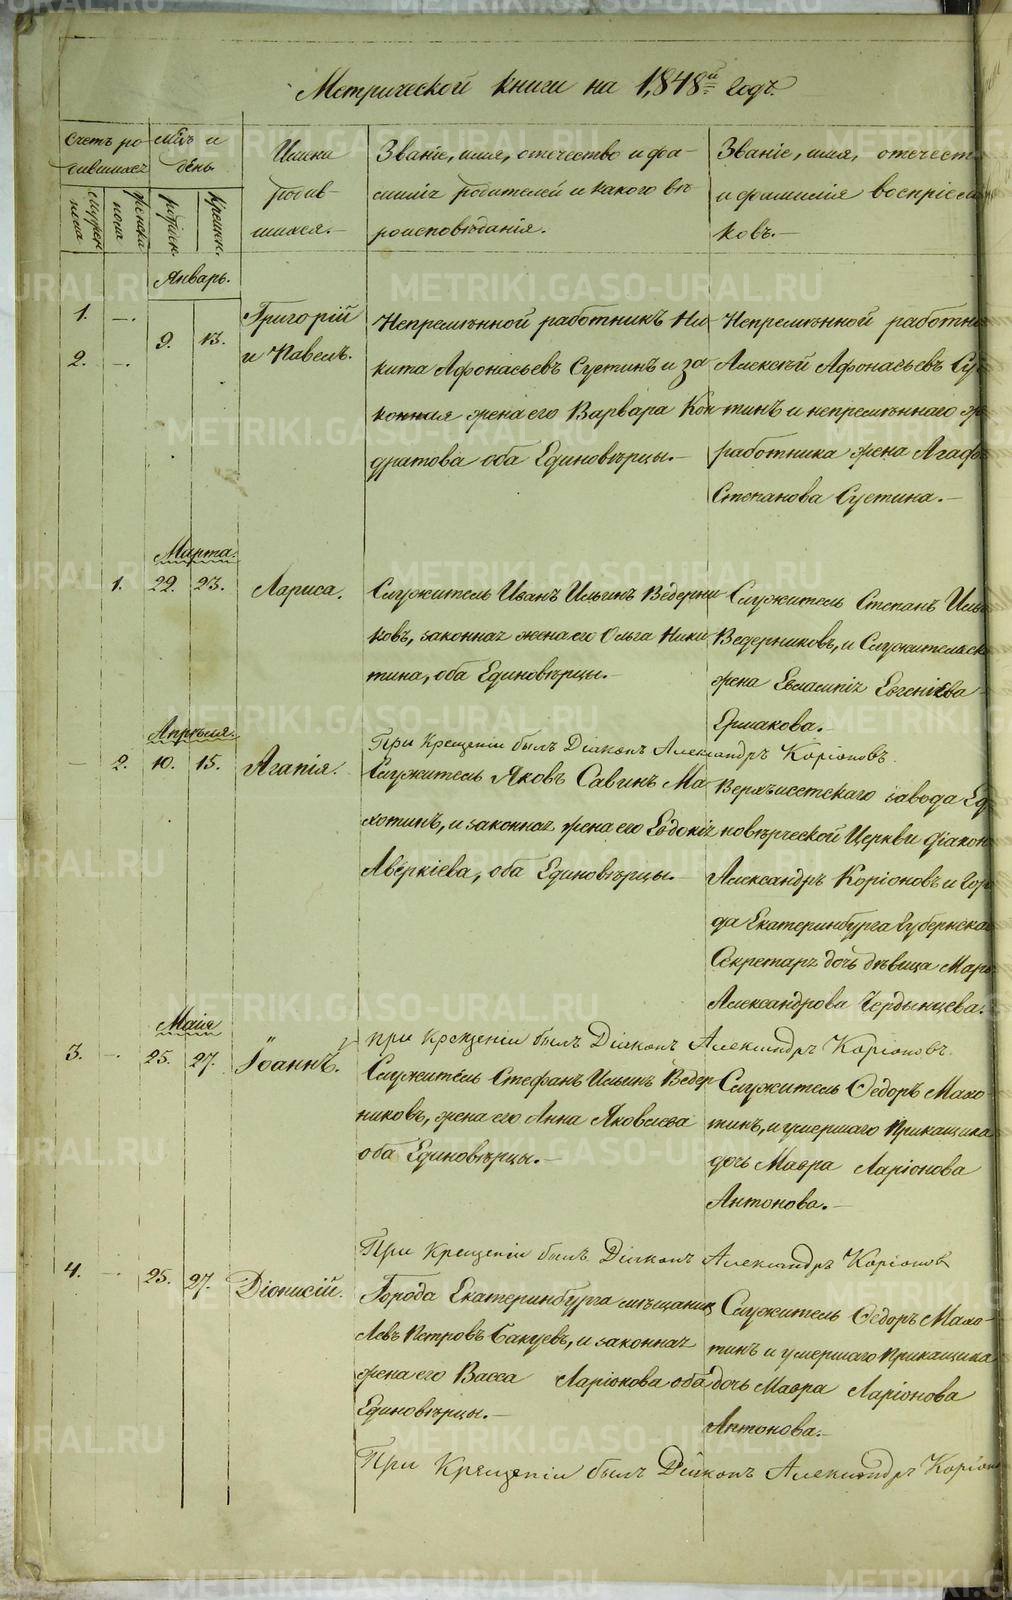 Метрической книги на 1,848й годъ.
Счетъ ро-
дившихся
Мѣс. и
день
Имена
родив-
шихся.-
Званіе, имя, отечество и фа-
миліи родителей и какого вѣ-
роисповѣданія.
Званіе, имя, отечест
и фамилія воспріем
ковъ.-
Январь.
1. -. 9. 13.
2. -.
Григорій
и Павелъ.
Непремѣнной работникъ Ни-
кита Афонасьевъ Суетинъ и за
конная жена его Варвара Кон
дратова оба Единовѣрцы.-
Непремѣнной работни
Алексѣй Афонасьевъ Су
тинъ и непремѣннаго
работника жена Агаф
Степанова Суетина.-
Марта.
1. 22. 23. Лариса.
Служитель Иванъ Ильинъ Ведерни
ковъ, законная жена его Ольга Ники
тина, оба Единовѣрцы.-
Служитель Степанъ Иль
Ведерниковъ, и Служительск
жена Евлампія Евгеніева
Ермакова.-
При Крещеніи былъ Діаконъ Александръ Коріоновъ.
Апрѣля.
2. 10. 15. Агапія.
Служитель Яковъ Савинъ Ма
хотинъ, и законная жена его Евдокія
Аверкіева, оба Единовѣрцы.-
Верхъисетскаго завода Ед
новѣрческой Церкви діакон
Александръ Коріоновъ и гор
да Екатеринбурга Губернска
Секретаря дочь дѣвица Мар
Александрова Чердынцева.
При Крещеніи былъ Діаконъ Александръ Коріоновъ.
Маія
3. -. 25. 27. Іоаннъ.
Служитель Стефанъ Ильинъ Ведер
никовъ, жена его Анна Яковлева
оба Единовѣрцы.-
Служитель Ѳедоръ Махо
тинъ, и умершаго Прикащика
дочь Мавра Ларіонова
Антонова.-
При Крещеніи былъ Діаконъ Александръ Коріоновъ
4. -. 25. 27. Діонисій.
Города Екатеринбурга мѣщанинъ
Левъ Петровъ Бакуевъ, и законная
жена его Васса Ларіонова оба
Единовѣрцы.-
Служитель Ѳедоръ Махо-
тинъ и умершаго Прикащика
дочь Мавра Ларіонова
Антонова.-
При Крещеніи былъ Діаконъ Александръ Коріоно
METRIKI.GASO-URAL.RU